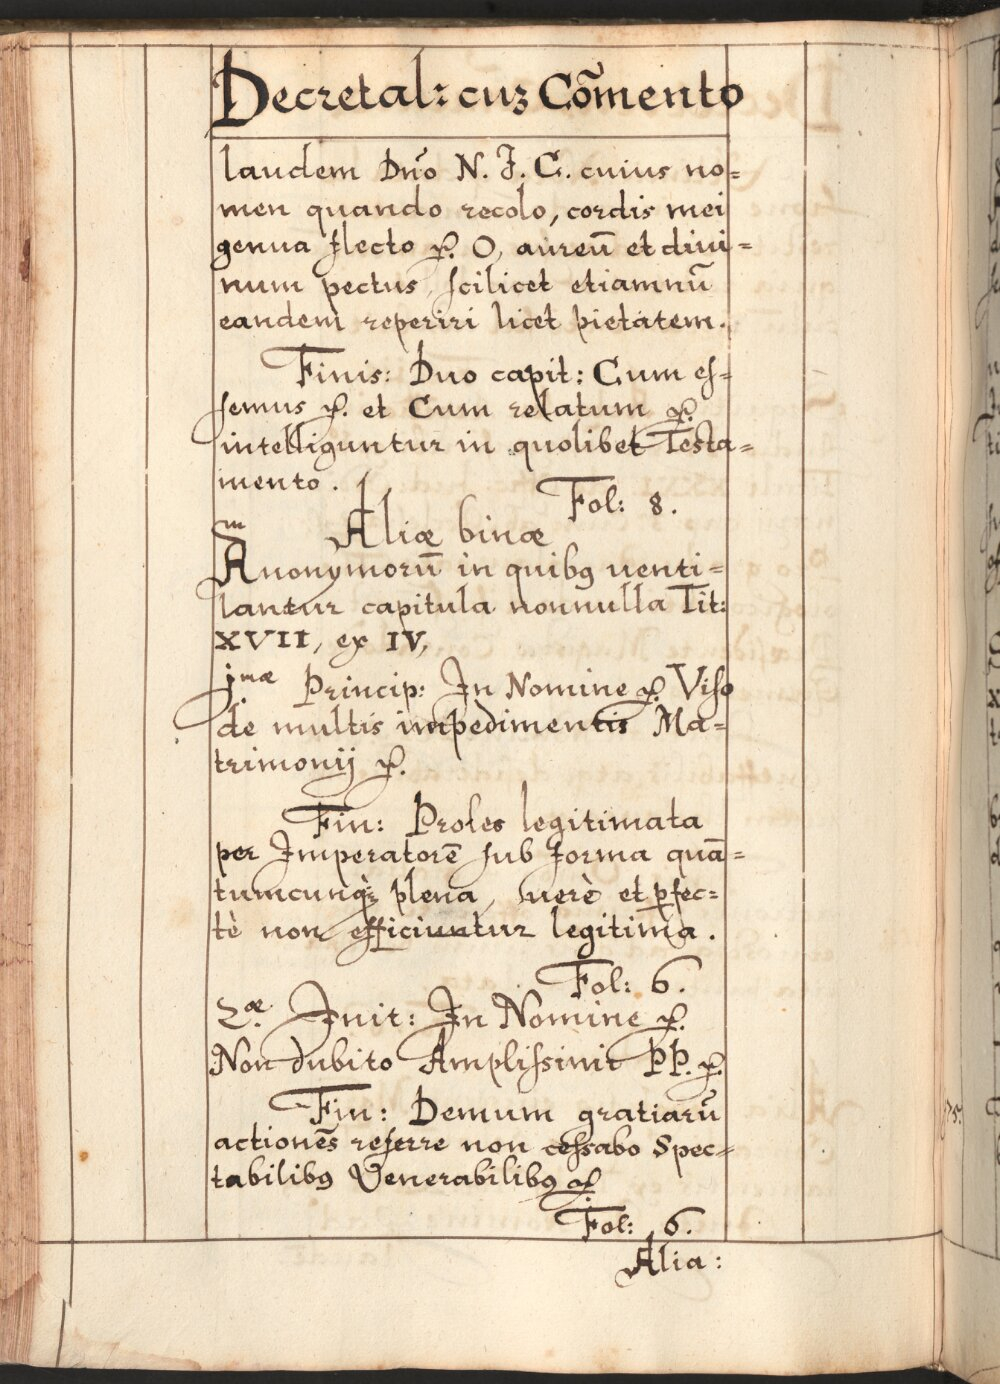 Decretal: cuz Com̃ento
laudem Dn̄o N. J. C. cuius no=
men quando recolo, cordis mei
genua flecto ꝛc. O, aureū et diui=
num pectus, scilicet etiamnū
eandem reperiri licet pietatem.
Finis: Duo capit: Cum es=
semus ꝛc. et Cum relatum ꝛc.
intelliguntur in quolibet Testa=
mento.
Fol: 8.
m Aliæ binæ
Anonymorū in quibꝰ uenti=
lantur capitula nonnulla Tit:
XVII, ex IV,
jmæ Princip: In Nomine ꝛc. Viso
de multis impedimentis Ma=
trimonij ꝛc.
Fin: Proles legitimata
per Imperatorē sub forma quā=
tumcunqꝫ̀ plena, uerè et ꝑfec=
tè non efficiuntur legitima.
Fol: 6.
2æ. Init: In Nomine ꝛc.
Non dubito Amplissimi PP. ꝛc.
Fin: Demum gratiarū
actionēs referre non cessabo Spec=
tabilibꝰ Venerabilibꝰ ꝛc.
Fol: 6.
Alia: